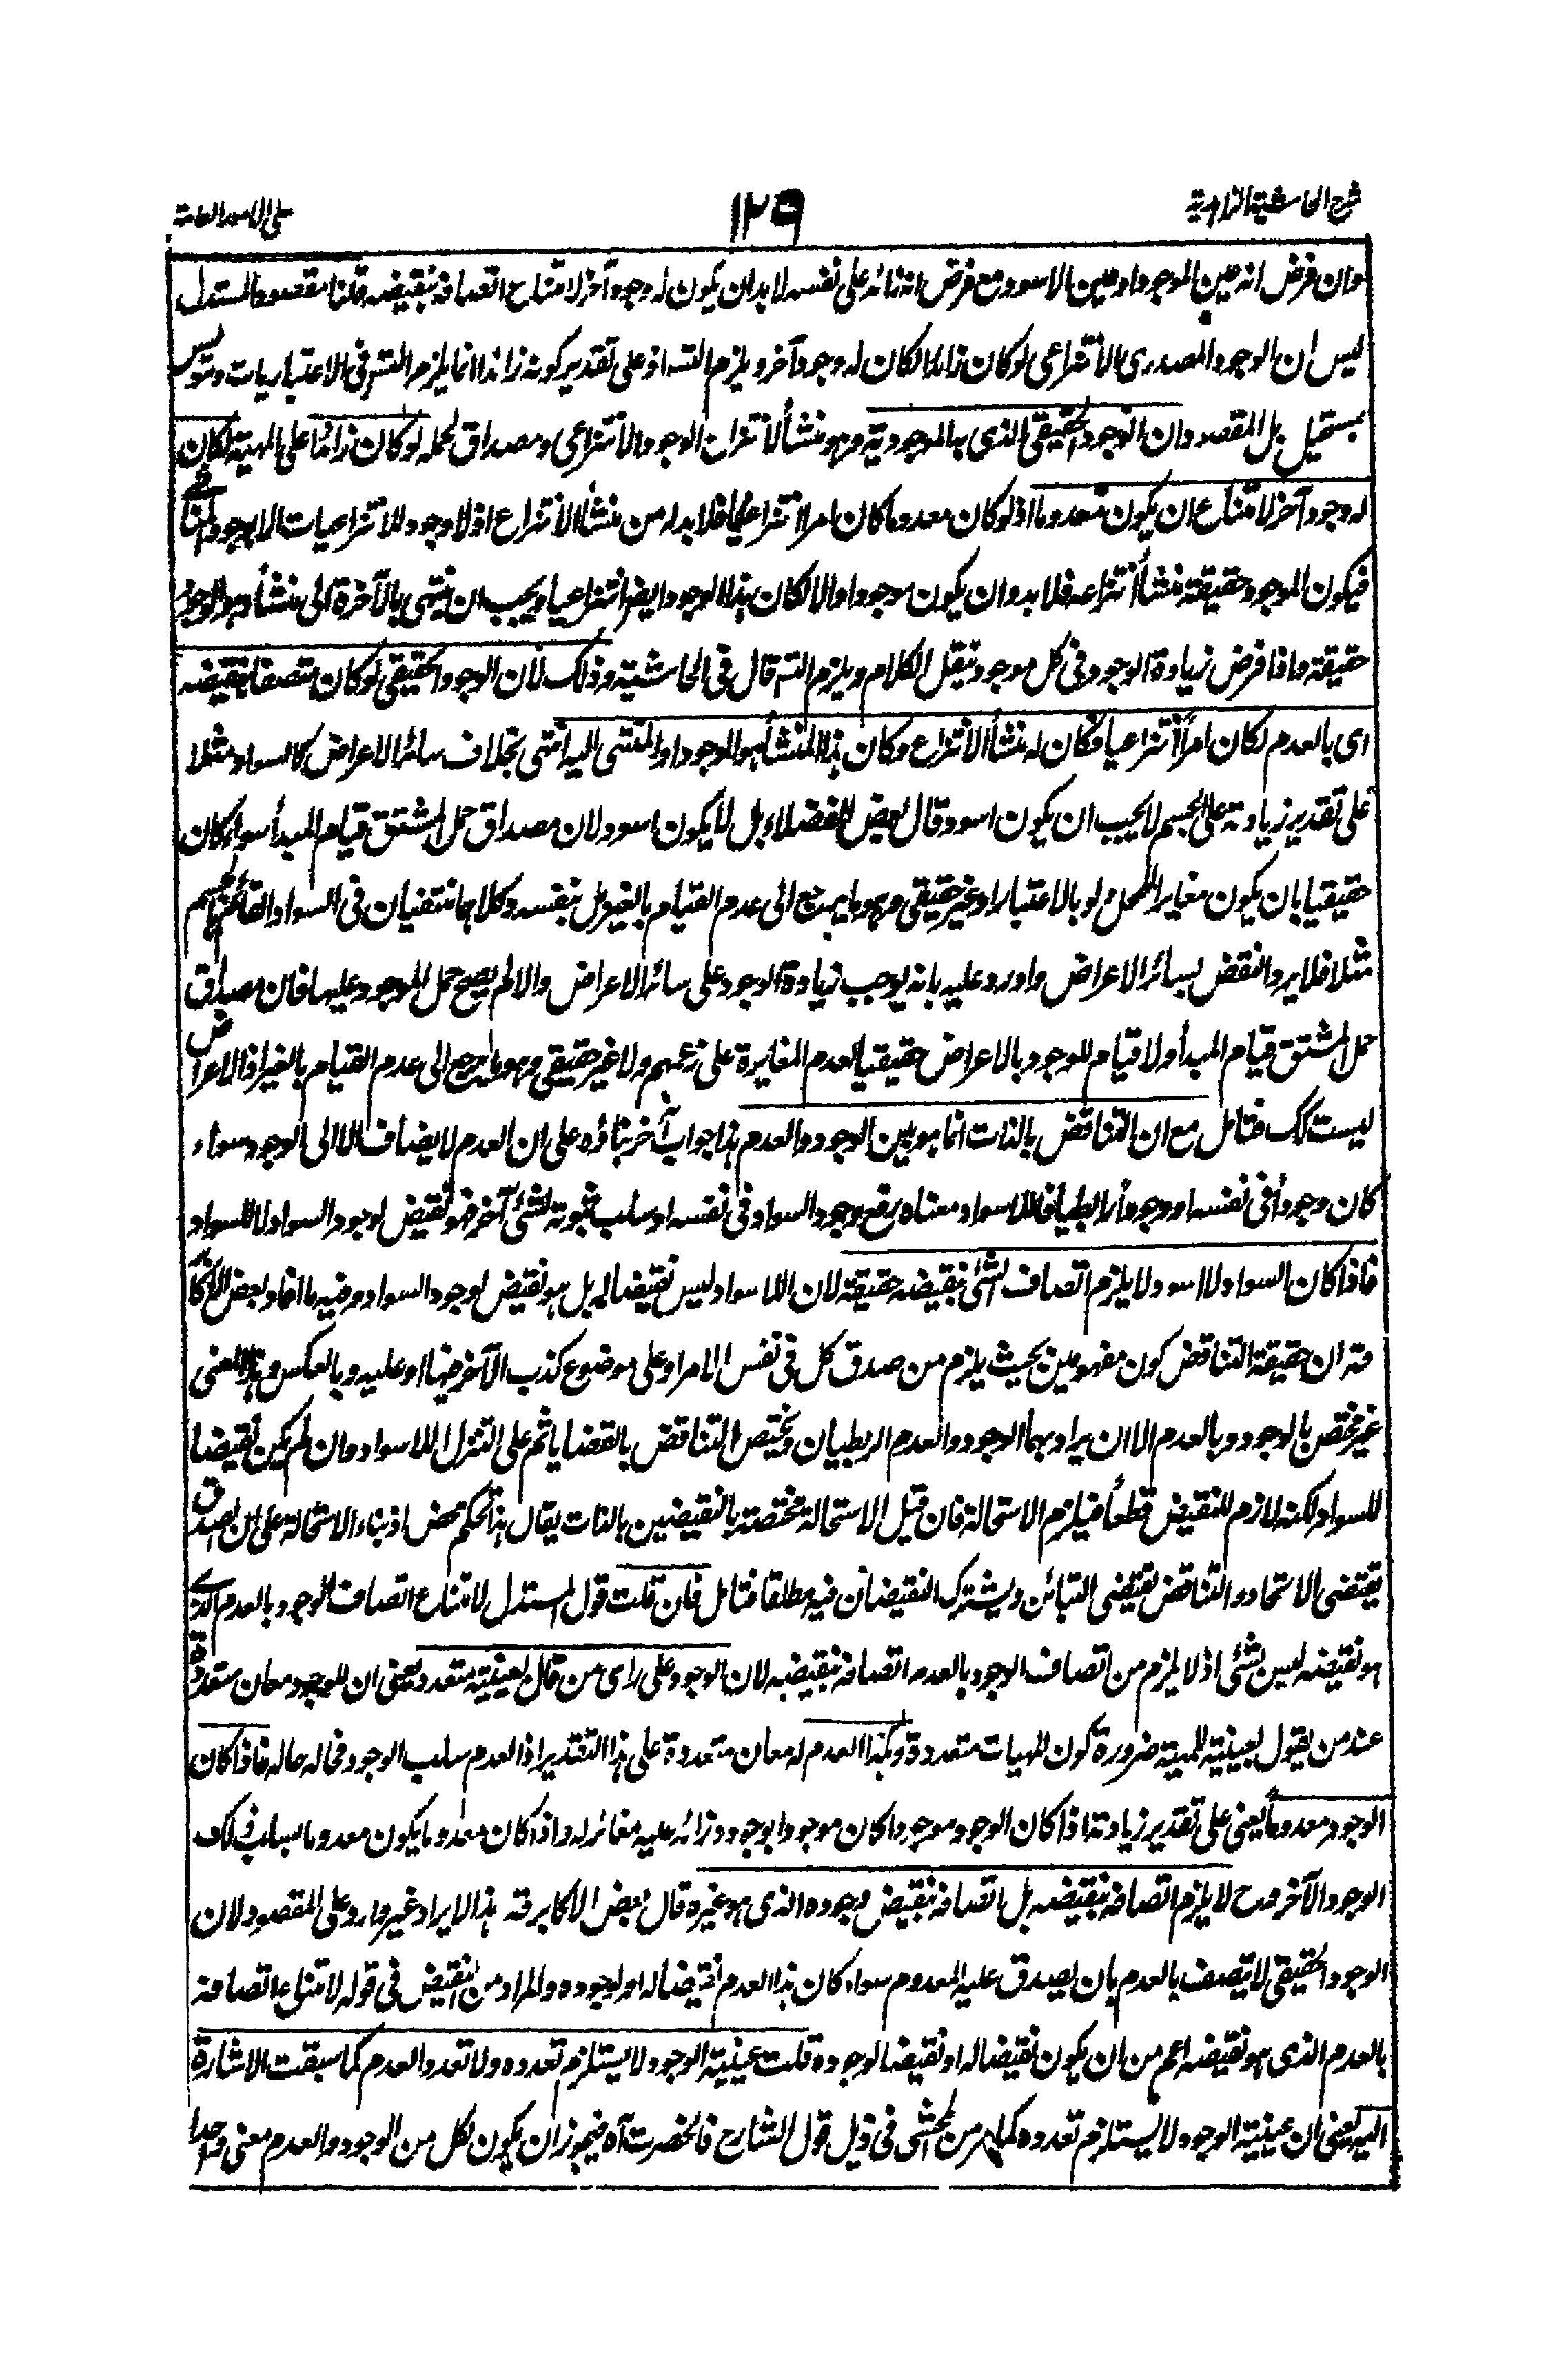 شرح الحاشية الزاهدية ١٢٩ على الامور العامة
وان فرض انه عين الموجود او عين الاسود ومع فرض انه زائد على نفسه لا بد ان يكون له وجود آخر لامتناع اتصافه بنقيضه قلنا مقصود المستدل
ليس ان الوجود المصدري الانتزاعي لو كان زائدا لكان له وجود آخر ويلزم التسه اذ على تقدير كونه زائدا انما يلزم التسه في الاعتباريات وهو ليس
بمستحيل بل المقصود ان الوجود الحقيقي الذي به الموجودية وهو منشأ لانتزاع الوجود الانتزاعي ومصداق لحمله لو كان زائدا على المهية لكان
له وجود آخر لامتناع ان يكون معدوما اذ لو كان معدوما كان امرا انتزاعيا فلا بد له من منشأ الانتزاع اذ لا وجود للانتزاعيات الا بوجود المناشي
فيكون الموجود حقيقة منشأ انتزاعه فلا بد وان يكون موجودا والا لكان هذا الوجود ايضا انتزاعيا ويجب ان ينتهي بالآخرة الى منشأ هو الوجود
حقيقة واذا فرض زيادة الوجود في كل موجود ننقل الكلام ويلزم التسه قال في الحاشية وذلك لان الوجود الحقيقي لو كان متصفا بنقيضه
اى بالعدم لكان امرا انتزاعيا فكان له منشأ الانتزاع وكان هذا المنشأ هو الوجود او المنتهى اليه انتهى بخلاف سائر الاعراض كالسواد مثلا
على تقدير زيادته على الجسم لا يجب ان يكون اسود وقال بعض الفضلاء بل لا يكون اسود لان مصداق حمل المشتق قيام المبدأ سواء كان
حقيقيا بان يكون مغايرا للمحل ولو بالاعتبار او غير حقيقي وهو ما يرجع الى عدم القيام بالغير بل بنفسه وكلاهما منتفيان في السواد القائم بالجسم
مثلا فلا يرد النقض بسائر الاعراض واورد عليه بانه يوجب زيادة الوجود على سائر الاعراض والا لم يصح حمل الموجود عليها فان مصداق
حمل المشتق قيام المبدأ ولا قيام للوجود بالاعراض حقيقيا لعدم المغايرة على زعمهم ولا غير حقيقي وهو ما يرجع الى عدم القيام بالغير اذ الاعراض
ليست كك فتامل مع ان التناقض بالذات انما هو بين الوجود والعدم هذا جواب آخر بناؤه على ان العدم لا يضاف الا الى الوجود سواء
كان وجودا في نفسه او وجودا رابطيا فاللاسواد معناه رفع وجود السواد في نفسه او سلب ثبوته لشئ آخر فهو نقيض لوجود السواد لا للسواد
فاذا كان السواد لا اسود لا يلزم اتصاف الشئ بنقيضه حقيقة لان اللاسواد ليس نقيضا له بل هو نقيض لوجود السواد وفيه ما افاد بعض الاكابر
قه ان حقيقة التناقض كون مفهومين بحيث يلزم من صدق كل في نفس الامر او على موضوع كذب الآخر فيها او عليه وبالعكس وهذا المعنى
غير مختص بالوجود وبالعدم الا ان يراد بهما الوجود والعدم الربطيان ويختص التناقض بالقضايا ثم على التنزل اللاسواد وان لم يكن نقيضا
للسواد لكنه لازم للنقيض قطعا فيلزم الاستحالة فان قيل الاستحالة مختصة بالنقيضين بالذات يقال هذا تحكم محض اذ بناء الاستحالة على ان الصدق
يقتضي الاتحاد والتناقض يقتضي التبائن ويشترك النقيضان فيه مطلقا فتامل فان قلت قول المستدل لامتناع اتصاف الوجود بالعدم الذي
هو نقيضه ليس بشئ اذ لا يلزم من اتصاف الوجود بالعدم اتصافه بنقيضه لان الوجود على راى من قال بعينيته متعدد يعني ان للوجود معان متعددة
عند من يقول بعينيته للمهية ضرورة كون المهيات متعددة وكذا العدم له معان متعددة على هذا التقدير اذ العدم سلب الوجود فحاله حاله فاذا كان
الوجود معدوما يعني على تقدير زيادته اذا كان الوجود موجودا كان موجودا بوجود زائد عليه مغائر له واذا كان معدوما يكون معدوما بسلب ذلك
الوجود الآخر وح لا يلزم اتصافه بنقيضه بل اتصافه بنقيض وجوده الذي هو غيره قال بعض الاكابر قه هذا الايراد غير وارد على المقصود لان
الوجود الحقيقي لا يتصف بالعدم بان يصدق عليه المعدوم سواء كان هذا العدم نقيضا له او لوجوده والمراد من النقيض في قوله لامتناع اتصافه
بالعدم الذي هو نقيضه اعم من ان يكون نقيضا له او نقيضا لوجوده قلت عينية الوجود لا يستلزم تعدده ولا تعدد العدم كما سبقت الاشارة
اليه يعني ان عينية الوجود لا يستلزم تعدده كما مر من المحشي في ذيل قول الشارح فانحصرت آه فيجوز ان يكون لكل من الوجود والعدم معنى واحدا